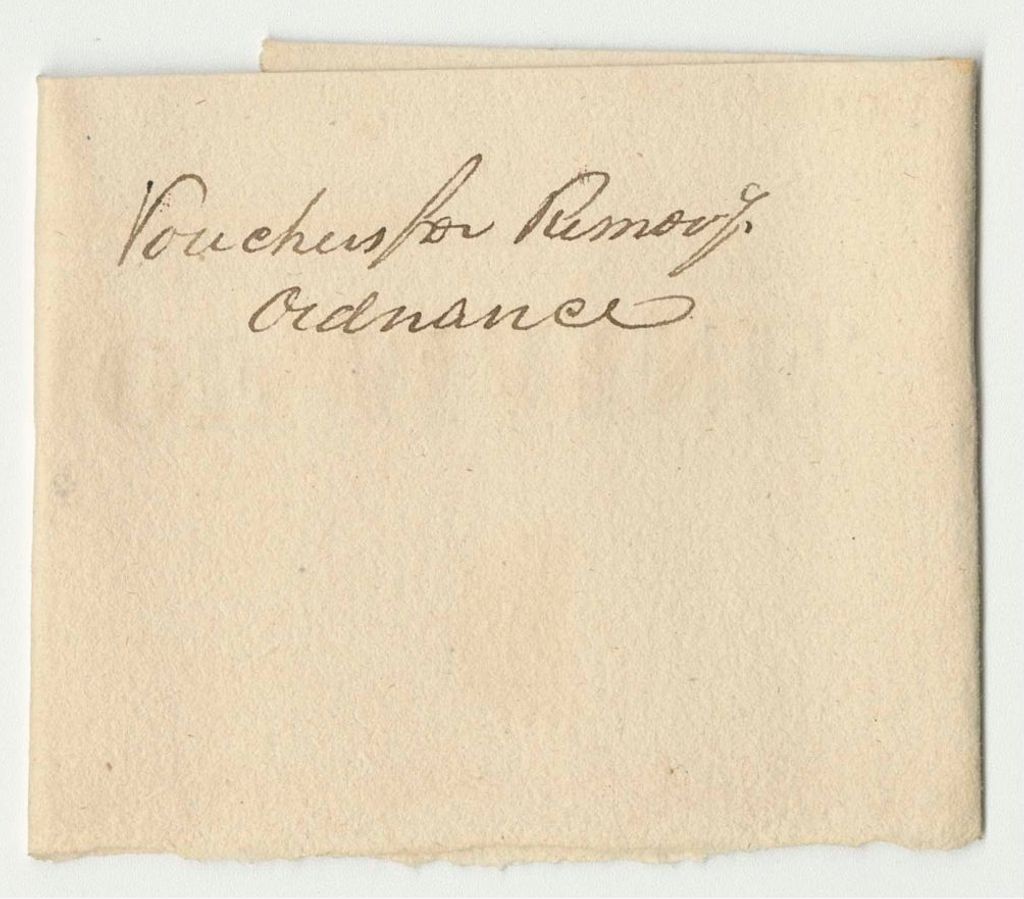 Vouchers for Removg.
Ordnance